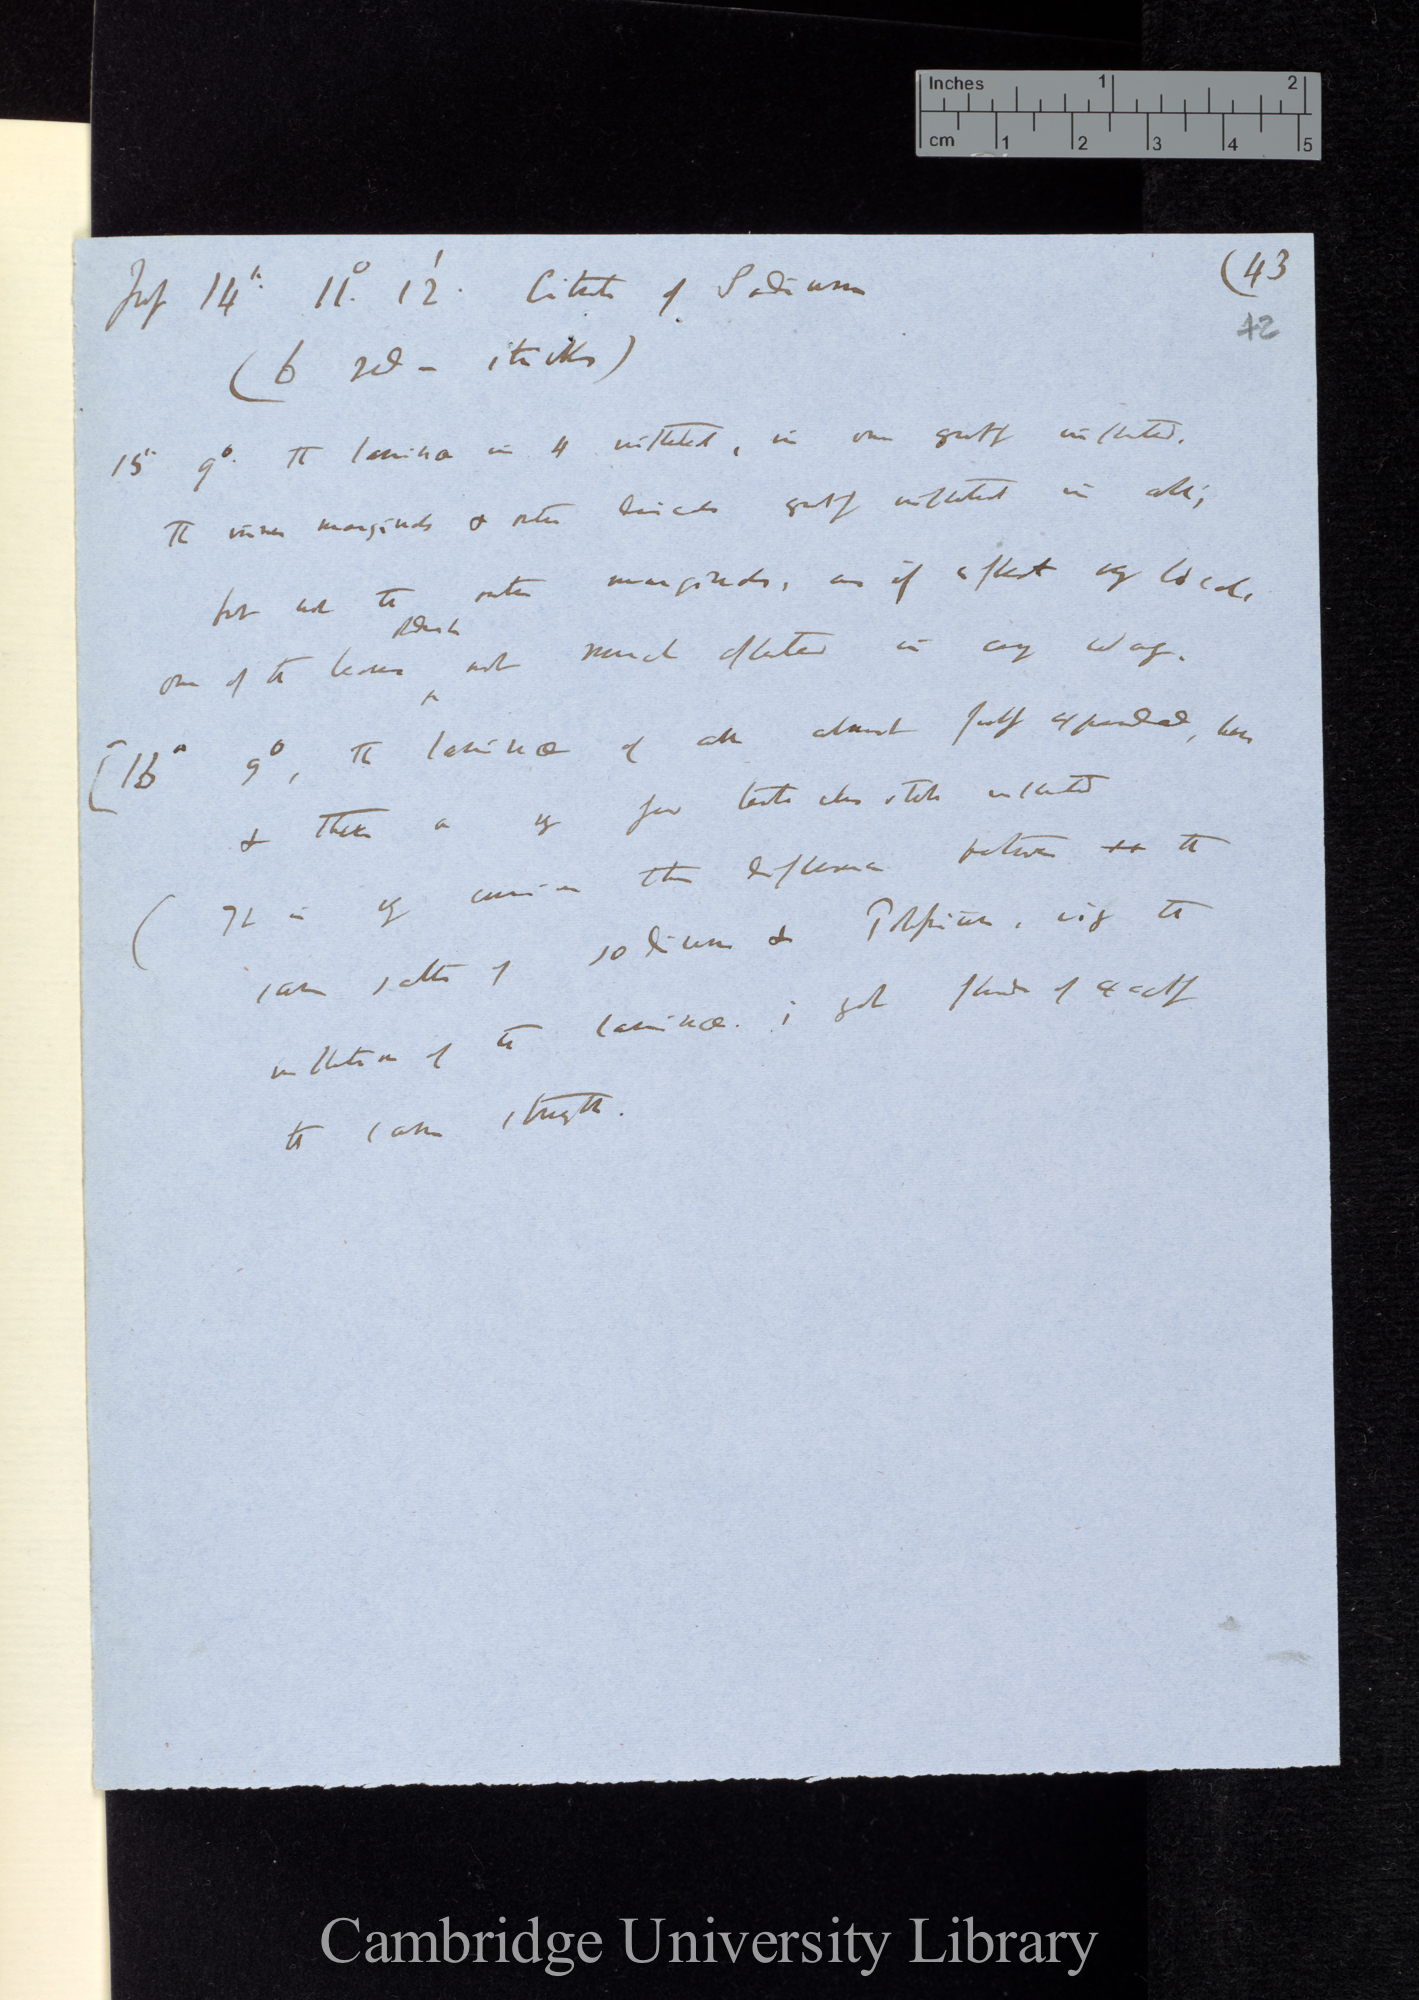 Inches 1 2
cm 1 2 3 4 5
(43
42
July 14th. 11°. 12'. Citrate of Sodium
(6 red – sticks)
15th 9°. The lamina in 4 inflected, in one greatly inflected.
The inner marginals & outer discals greatly inflected in all;
but not the outer marginals, as if effect very local.
One of the leaves not much affected in any way.
[16th 9°, The laminæ of all almost fully expanded, here
& there a very few tentacles still inflected
(It is very curious this difference between the
same salts of sodium & Potassium, viz the
inflection of the laminæ. I got fluids of exactly
the same strength.
Cambridge University Library